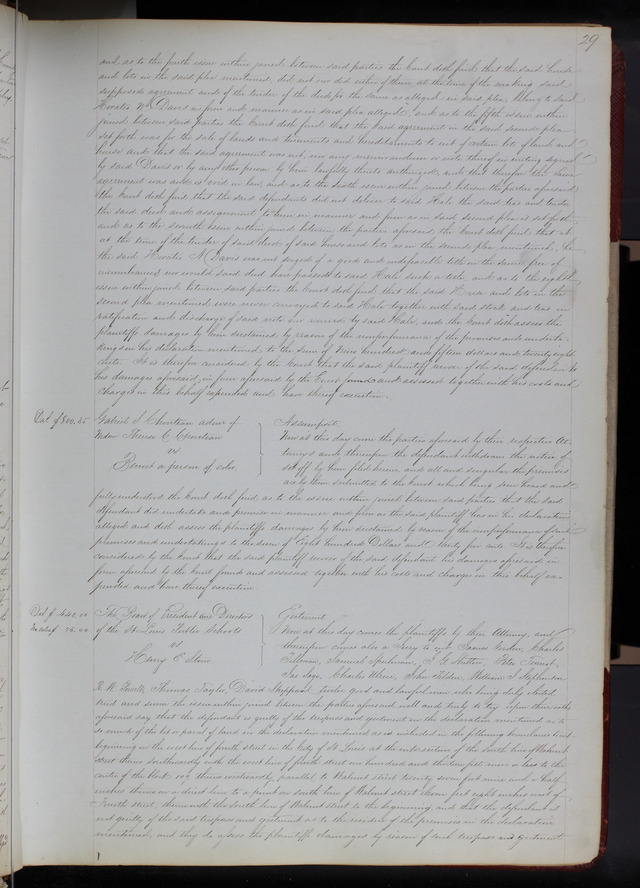 29
and as to the fourth issue within joined between said parties the Court doth find that the said House
and lots in the said plea mentioned, did not nor did either of them at the time of the making said
supposed agreement and of the tender of the deed for the same as alleged in said plea, belong to said
Horatio N. Davis in fee and manner as in said plea alleged, and as to the fifth issue within
joined between said parties the Court doth find that the said agreement in the said second plea
set forth was for the sale of lands and tenements and hereditaments to wit of certain lots of land and
house and that the said agreement was not, nor any memorandum or note thereof in writing signed
by said Davis or by any other person by him lawfully thereto authorized, and that therefore the said
agreement was and is void in law, and as to the sixth issue within joined between the parties aforesaid
the Court doth find that the said defendants did not deliver to said Hale the said and tender
the said deed and assignment to him in manner and form as in said second plea is set forth
and as to the seventh issue within joined between the parties aforesaid the Court doth find that
at the time of the tender of said deed of said house and lots as in the second plea mentioned, he
the said Horatio N Davis was not seized of a good and indefeasible title in the same free of
incumbrances nor would said deed have passed to said Hale such a title, and as to the eighth
issue within joined between said parties the Court doth find that the said House and lots in the
second plea mentioned were never conveyed to said Hale together with said stock and teas in
satisfaction and discharge of said note nor received by said Hale, and the Court doth assess the
plaintiffs damages by him sustained by reason of the nonperformance of the promises and under-
takings in his declaration mentioned, to the sum of Nine hundred and fifteen dollars and twenty eight
cents. It is therefore considered by the Court that the said plaintiff recover of the said defendant
his damages aforesaid in form aforesaid by the Court found and assessed together with his costs and
charges in this behalf expended and have thereof execution.
Dat. of 800.25
Gabriel S. Chouteau admr of
Mdm Therese C. Chouteau
vs
a person of color
Assumpsit
Now at this day come the parties aforesaid by their respective At-
torneys and thereupon the defendant withdraws the notice of
set off by him filed herein and all and singular the premises
are by them submitted to the Court which being seen heard and
fully understood the Court doth find as to the issue within joined between said parties that the said
defendant did undertake and promise in manner and form as the said plaintiff has in his declaration
alleged and doth assess the plaintiffs damages by him sustained by reason of the nonperformance of said
promises and undertakings to the sum of Eight hundred Dollars and Twenty five cents. It is therefore
considered by the Court that the said plaintiff recover of the said defendant his damages aforesaid in
form aforesaid by the Court found and assessed together with his costs and charges in this behalf ex-
pended and have thereof execution.
The Board of President and Directors
of the St Louis Public Schools
vs
Henry C
Ejectment
Now at this day comes the plaintiffs by their Attorney and
thereupon comes also a Jury to wit James Charles
Tillman, Samuel Spelman, Peter
Charles John William J Stephenson
R. M. Thomas Taylor, David Sheppard twelve good and lawful men who being duly elected
tried and sworn the issue within joined between the parties aforesaid well and truly to try upon their oath
aforesaid say that the defendant is guilty of the trespass and ejectment in the declaration mentioned as to
so much of the lot or parcel of land in the declaration mentioned as is included in the following boundaries to wit
beginning on the west line of fourth street in the City of St Louis at the intersection of the South line of Walnut
street thence southwardly with the west line of fourth street one hundred and more or less to the
center of the block 109 thence westwardly parallel to Walnut street twenty seven feet nine and a half
inches thence in a direct line to a point on south line of Walnut street feet eight inches west of
Fourth street, thence with the South line of Walnut street to the beginning and that the defendant is
not guilty of the said trespass and ejectment as to the residue of the premises in the declaration
mentioned, and they do assess the plaintiffs damages by reason of such trespass and ejectment